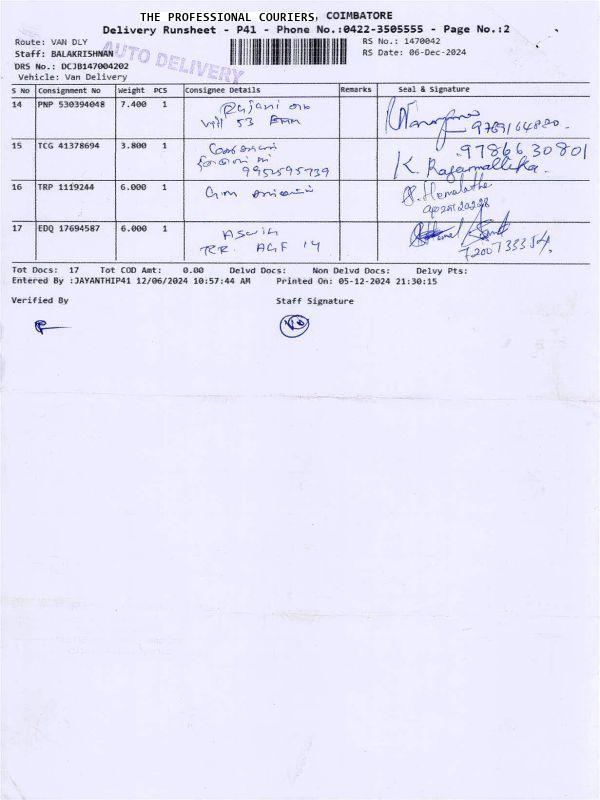 THE PROFESSIONAL COURIERS, COIMBATORE
Delivery Runsheet - P41 - Phone No.:0422-3505555 - Page No.:2
Route: VAN DLY
RS No.: 1470042
Staff: BALAKRISHNAN
RS Date: 06-Dec-2024
AUTO DELIVERY
DRS No.: DCJB147004202
Vehicle: Van Delivery
S No Consignment No Weight PCS Consignee Details Remarks Seal & Signature
14 PNP 530394048 7.400 1
53
15 TCG 41378694 3.800 1
9786630801
9952595739
K. Rajamallika.
16 TRP 1119244 6.000 1
17 EDQ 17694587 6.000 1 Aswin
Tot Docs: 17 Tot COD Amt: 0.00 Delvd Docs: Non Delvd Docs: Delvy Pts:
Entered By :JAYANTHIP41 12/06/2024 10:57:44 AM Printed On: 05-12-2024 21:30:15
Verified By Staff Signature